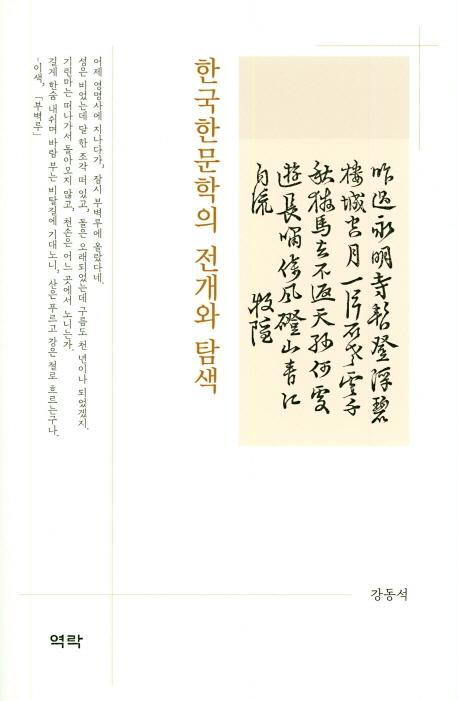 昨過永明寺暫登浮碧
樓城空月一片石老雲千
秋猉馬去不返天孫何處
遊長嘯倚風磴山青江
自流 牧隱
한국한문학의 전개와 탐색
어제 영명사에 지나다가, 잠시 부벽루에 올랐다네.
성은 비었는데 달 한 조각 떠 있고, 돌은 오래되었는데 구름도 천 년이나 되었겠지.
기린마는 떠나가서 돌아오지 않고, 천손은 어느 곳에서 노니는가.
길게 한숨 내쉬며 바람 부는 비탈길에 기대노니, 산은 푸르고 강은 절로 흐르는구나.
-이색, 「부벽루」
강동석
역락